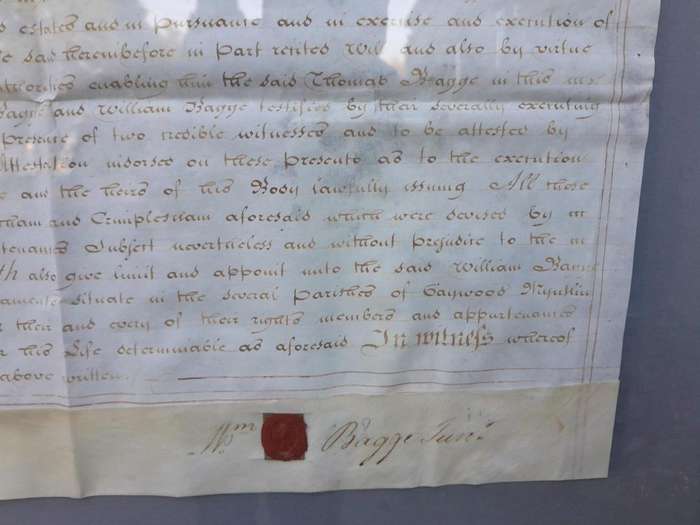 s estates and in pursuance and in exercise and execution of
said hereinbefore in part recited Will and also by virtue
authorities enabling him the said Thomas Bagge in this
Bagge and William Bagge testified by their severally executing
presence of two credible witnesses and to be attested by
Attestation indorsed on these presents as to the execution
and the heirs of his Body lawfully issuing All those
and Crimplesham aforesaid which were devised by
Subject nevertheless and without prejudice to the
th also give limit and appoint unto the said William Bagge
situate in the several Parishes of Gaywood
their and every of their rights members and appurtenances
his Life determinable as aforesaid In witness whereof
above written.
Wm Bagge Junr